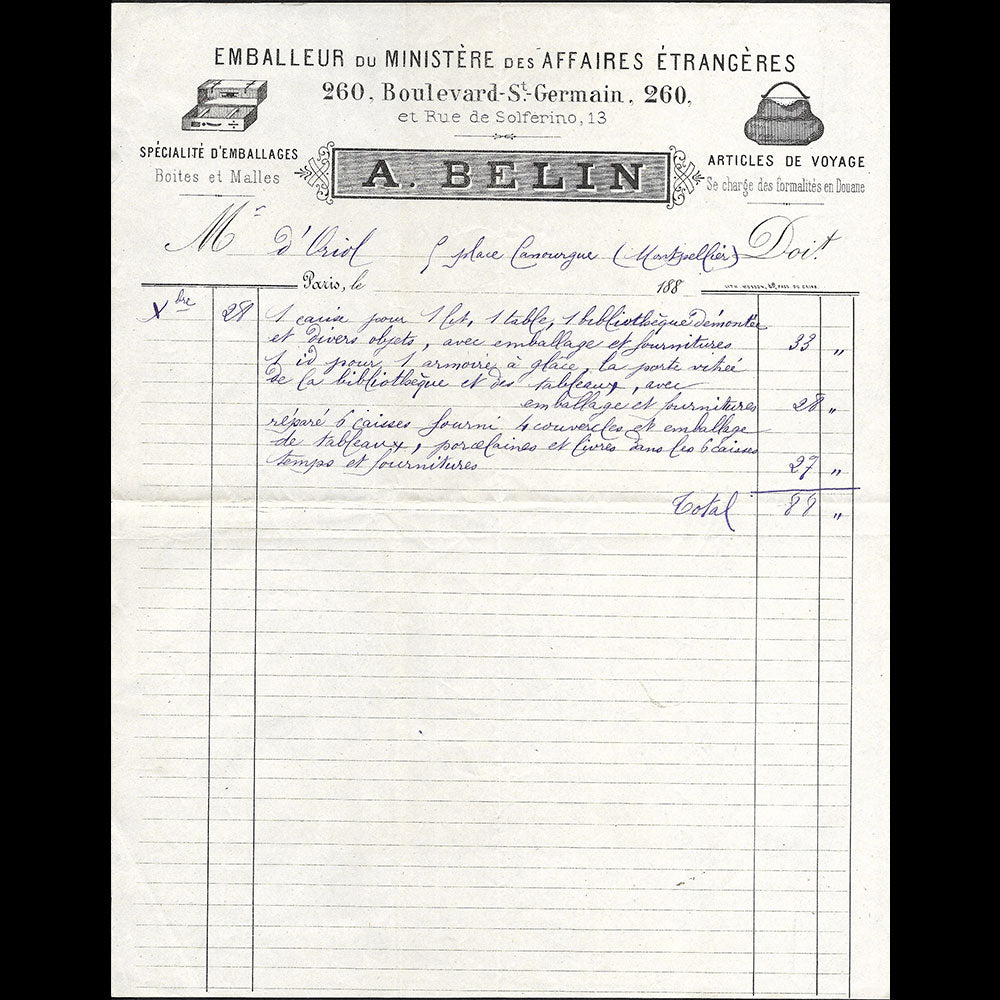 EMBALLEUR DU MINISTÈRE DES AFFAIRES ÉTRANGÈRES
260, Boulevard-St-Germain, 260,
et Rue de Solferino, 13
SPÉCIALITÉ D'EMBALLAGES
Boites et Malles
A. BELIN
ARTICLES DE VOYAGE
Se charge des formalités en Douane
Mr d'Oriol 5 place Canourgue (Montpellier) Doit
Paris, le 188
LITH. 
Xbre 28 1 caisse pour 1 lit, 1 table, 1 bibliothèque démontée
et divers objets, avec emballage et fournitures 33 "
1 id pour 1 armoire à glace, la porte vitrée
de la bibliothèque et des tableaux, avec
emballage et fournitures 28 "
réparé 6 caisses fourni 4 couvercles et emballage
de tableaux, porcelaines et livres dans les 6 caisses
temps et fournitures 27 "
Total 88 "